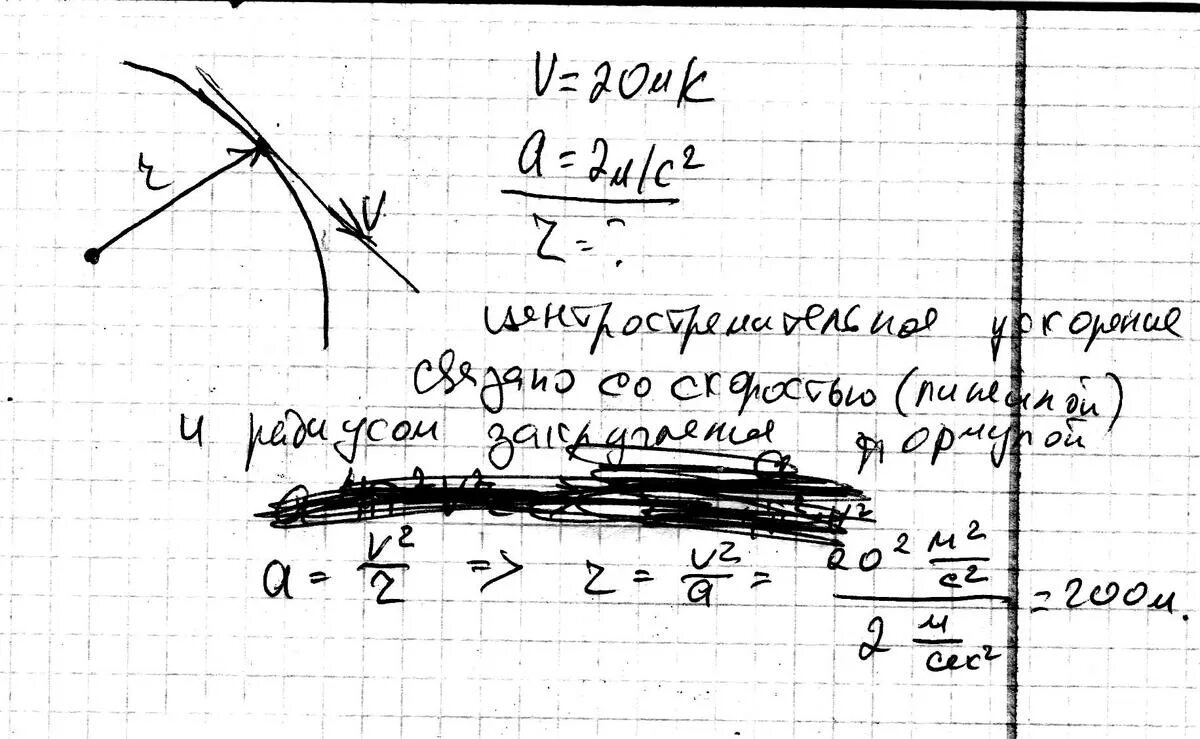 V = 20 м/с
a = 2 м/с²
r = ?
r
V
центростремительное ускорение
связано со скоростью (линейной)
и радиусом закругления формулой
a = V²/r => r = V²/a = 20² м²/с² / 2 м/сек² = 200 м.